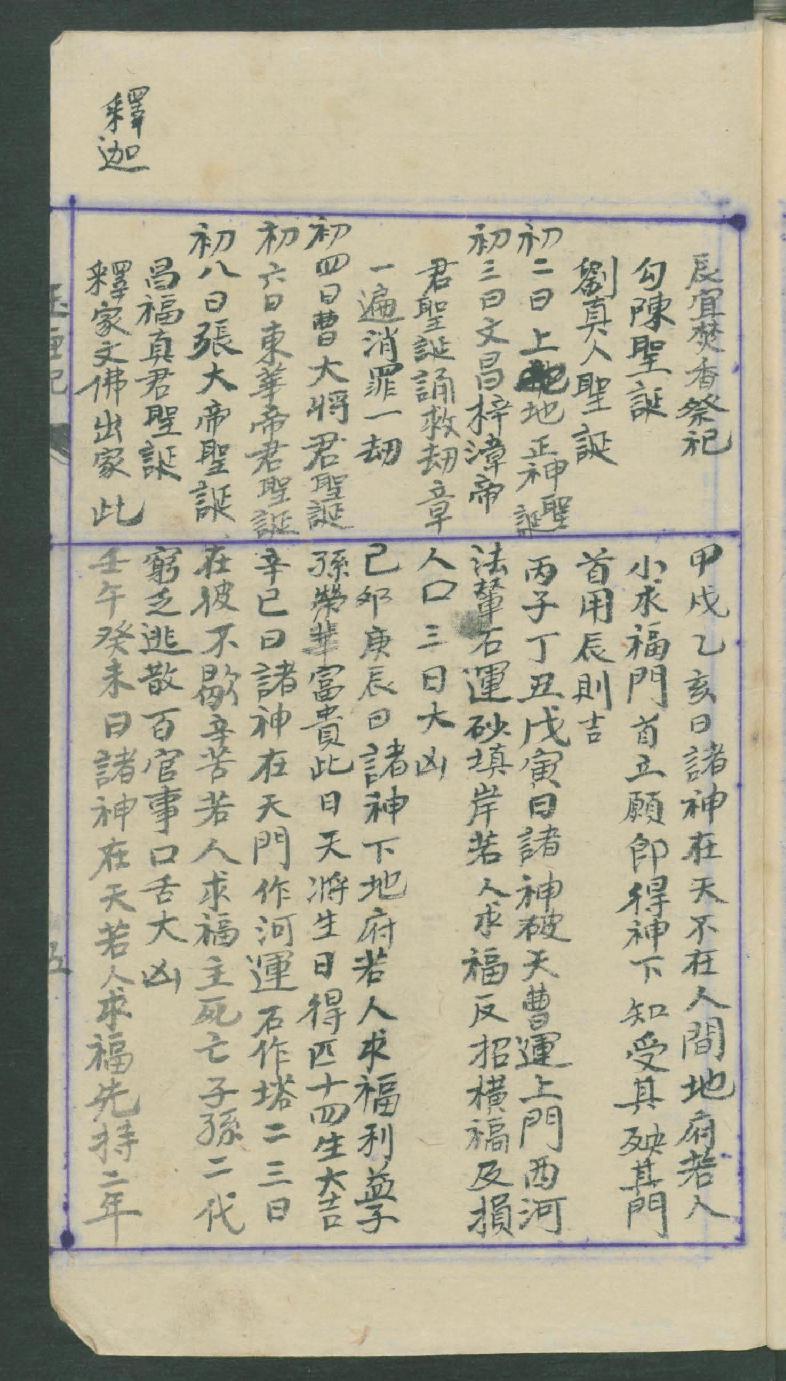 釋迦
辰宜焚香祭祀
勾陳聖誕
劉真人聖誕
初二日上地正神聖誕
初三曰文昌梓漳帝
君聖誕誦救劫章
一遍消罪一劫
初四日曹大將君聖誕
初六日東華帝君聖誕
初八日張大帝聖誕
昌福真君聖誕
釋家文佛出家此
甲戌乙亥日諸神在天不在人間地府若人
小求福門首立願即得神下知受其殃其門
首用辰則吉
丙子丁丑戊寅日諸神破天曹運上門西河
法輦石運砂填岸若人求福反招橫福及損
人口三日大凶
己卯庚辰日諸神下地府若人求福利益子
孫榮華富貴此日天將生日得匹十四生大吉
辛巳日諸神在天門作河運石作塔二三日
在彼不歇辛苦若人求福主死亡子孫二代
窮乏逃散百官事口舌大凶
壬午癸未日諸神在天若人求福先持二年
五